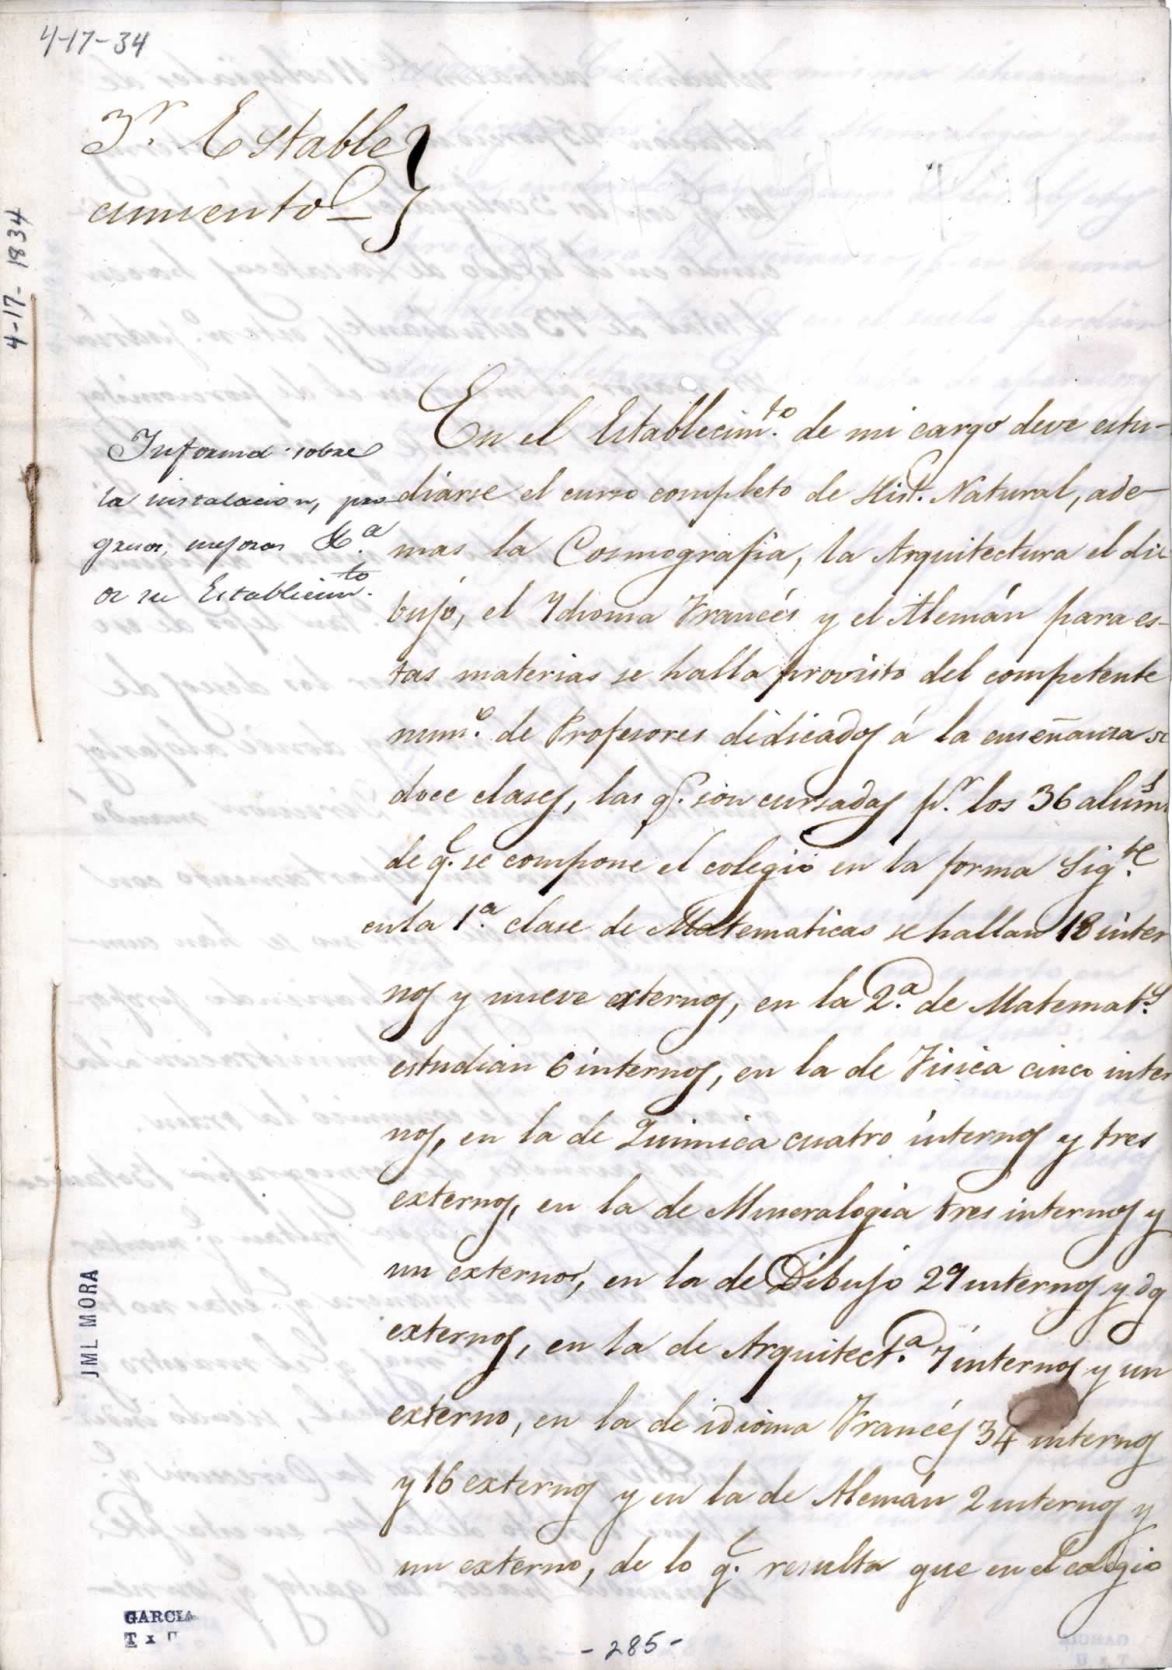 4-17-34
3r. Estable
cimiento
4-17-1834
Informa sobre
la instalacion, pro
gresos, mejoras &.a
de su Establecim.to
En el Establecim.to de mi cargo deve estu-
diarse el curso completo de Hist. Natural, ade-
mas la Cosmografia, la Arquitectura el di
bujo, el Idioma Francés y el Alemán para es-
tas materias se halla provisto del competente
num.o de Profesores didicados á la enseñanza de
doce clases, las q.e son cursadas p.r los 36 alum.s
de q.e se compone el colegio en la forma Sig.te
en la 1.a clase de Matematicas se hallan 18 inter
nos y nueve externos, en la 2.a de Matemat.s
estudian 6 internos, en la de Fisica cinco inter
nos, en la de Quimica cuatro internos y tres
externos, en la de Mineralogia tres internos y
un externo, en la de Dibujo 29 internos y dos
externos, en la de Arquitect.a 7 internos y un
externo, en la de idioma Francés 34 internos
y 16 externos y en la de Alemán 2 internos y
un externo, de lo q.e resulta que en el colegio
JML MORA
GARCIA
-285-